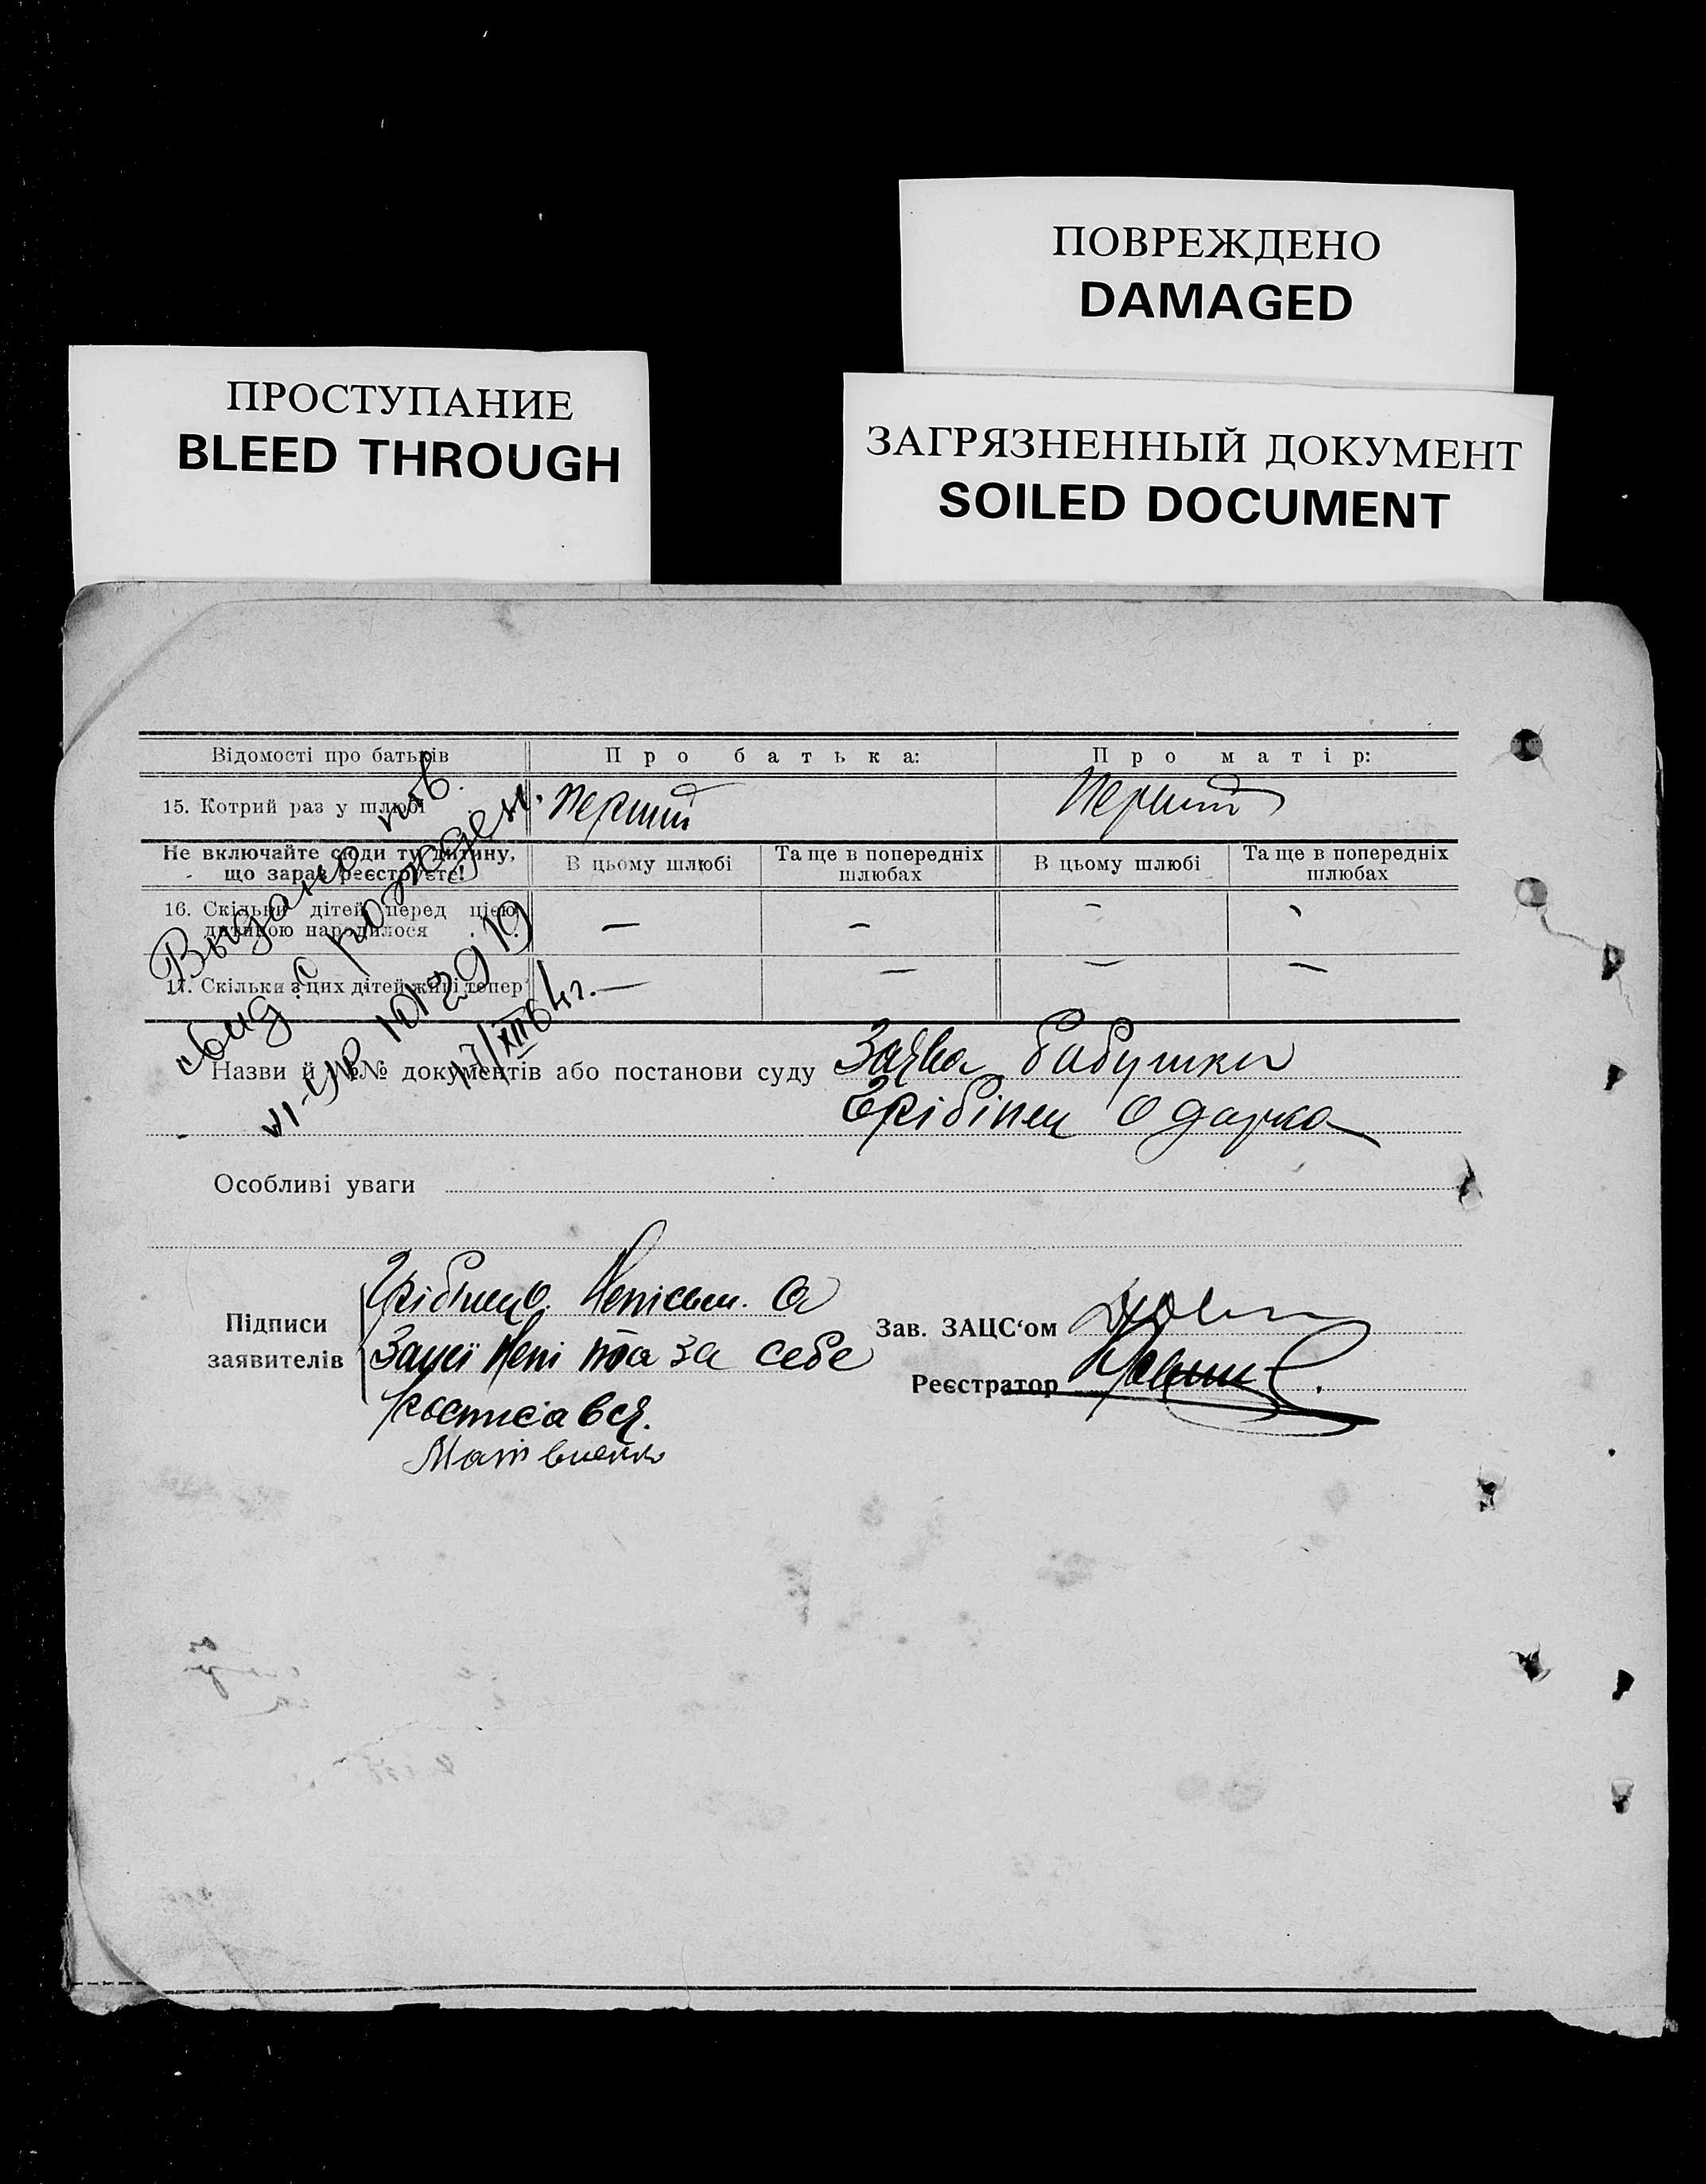 ПОВРЕЖДЕНО
DAMAGED
ПРОСТУПАНИЕ
BLEED THROUGH
ЗАГРЯЗНЕННЫЙ ДОКУМЕНТ
SOILED DOCUMENT
Відомості про батьків
Про батька:
Про матір:
15. Котрий раз у шлюбі
Перший
Перший
Не включайте сюди ту дитину,
що зараз реєструєте!
В цьому шлюбі
Та ще в попередніх
шлюбах
В цьому шлюбі
Та ще в попередніх
шлюбах
16. Скільки дітей перед цією
дитиною народилося
—
—
—
17. Скільки з цих дітей живі тепер
—
—
—
—
Выдано пов.
свид. о рожден.
VI-УР № 23919
17/XII 64 г.
Назви й №№ документів або постанови суду
Заява бабушки
Грібінец Одарка
Особливі уваги
Підписи
заявителів
Грібінец О. Неписьм. а
За неї та за себе
росписався.
Матвиенко
Зав. ЗАЦС‘ом
Реєстратор